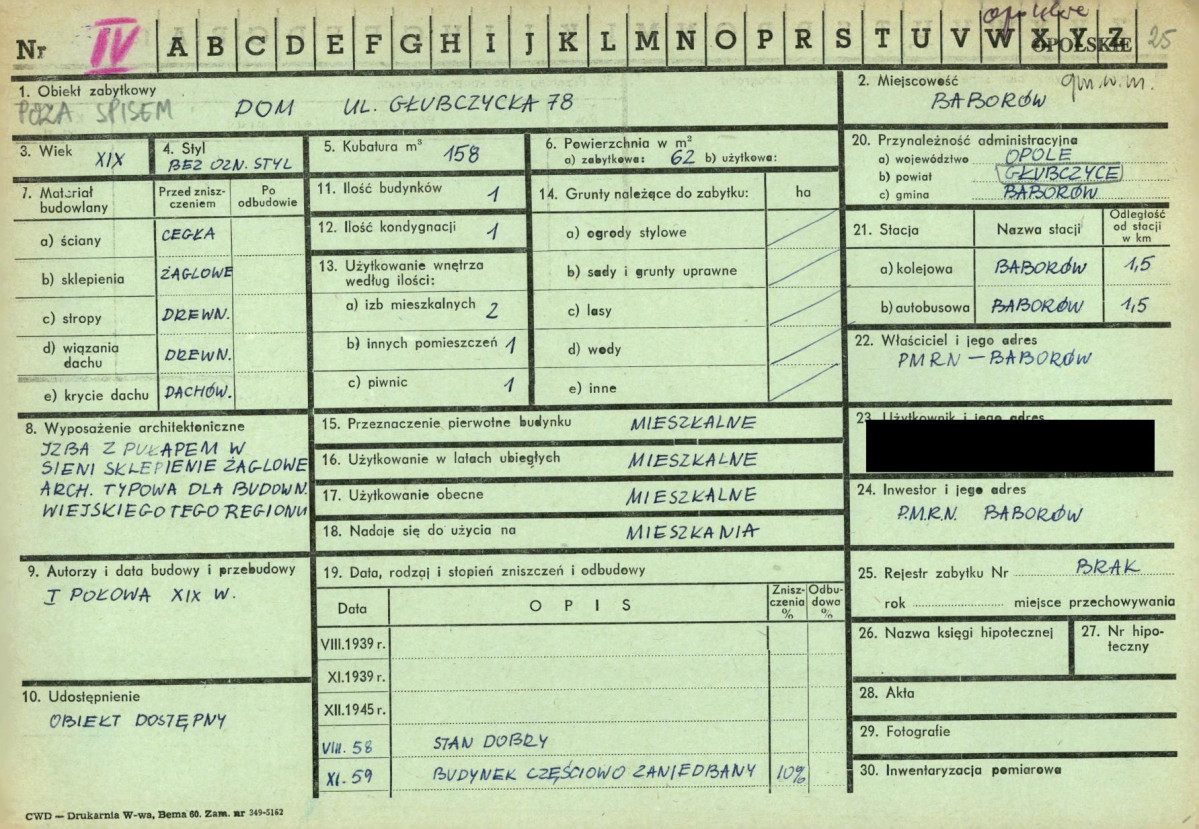 opolskie
Nr IV A B C D E F G H I J K L M N O P R S T U V W X Y Z
OPOLSKIE 25
1. Obiekt zabytkowy
POZA SPISEM
DOM UL. GŁUBCZYCKA 78
2. Miejscowość
BABORÓW
gm.w.m.
3. Wiek XIX
4. Styl
BEZ OZN. STYL
5. Kubatura m³ 158
6. Powierzchnia w m²
a) zabytkowa: 62 b) użytkowa:
20. Przynależność administracyjna
a) województwo OPOLE
b) powiat GŁUBCZYCE
c) gmina BABORÓW
7. Materiał budowlany
Przed zniszczeniem
Po odbudowie
a) ściany CEGŁA
b) sklepienia ŻAGLOWE
c) stropy DREWN.
d) wiązania dachu DREWN.
e) krycie dachu DACHÓW.
11. Ilość budynków 1
12. Ilość kondygnacji 1
13. Użytkowanie wnętrza
według ilości:
a) izb mieszkalnych 2
b) innych pomieszczeń 1
c) piwnic 1
14. Grunty należące do zabytku: ha
a) ogrody stylowe
b) sady i grunty uprawne
c) lasy
d) wody
e) inne
21. Stacja
Nazwa stacji
Odległość od stacji w km
a) kolejowa BABORÓW 1,5
b) autobusowa BABORÓW 1,5
22. Właściciel i jego adres
PMRN — BABORÓW
8. Wyposażenie architektoniczne
IZBA Z PUŁAPEM W
SIENI SKLEPIENIE ŻAGLOWE
ARCH. TYPOWA DLA BUDOWN.
WIEJSKIEGO TEGO REGIONU
15. Przeznaczenie pierwotne budynku MIESZKALNE
16. Użytkowanie w latach ubiegłych MIESZKALNE
17. Użytkowanie obecne MIESZKALNE
18. Nadaje się do użycia na MIESZKANIA
23. Użytkownik i jego adres
24. Inwestor i jego adres
P.M.R.N. BABORÓW
9. Autorzy i data budowy i przebudowy
I POŁOWA XIX W.
19. Data, rodzaj i stopień zniszczeń i odbudowy
Data
OPIS
Zniszczenia %
Odbudowa %
VIII.1939 r.
XI.1939 r.
XII.1945 r.
VIII. 58 STAN DOBRY
XI. 59 BUDYNEK CZĘŚCIOWO ZANIEDBANY 10%
25. Rejestr zabytku Nr BRAK
rok miejsce przechowywania
26. Nazwa księgi hipotecznej
27. Nr hipoteczny
28. Akta
29. Fotografie
30. Inwentaryzacja pomiarowa
10. Udostępnienie
OBIEKT DOSTĘPNY
CWD — Drukarnia W-wa, Bema 60. Zam. nr 349-5162